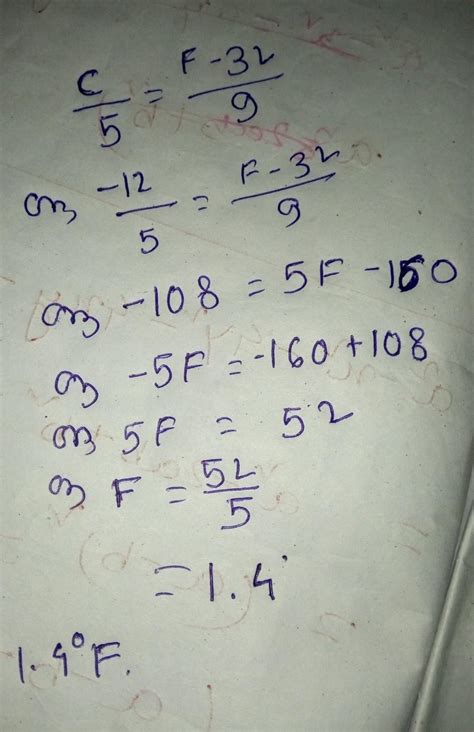 C/5 = F-32/9
বা -12/5 = F-32/9
বা -108 = 5F -160
বা -5F = -160+108
বা 5F = 52
বা F = 52/5
= 1.4°
1.4°F.